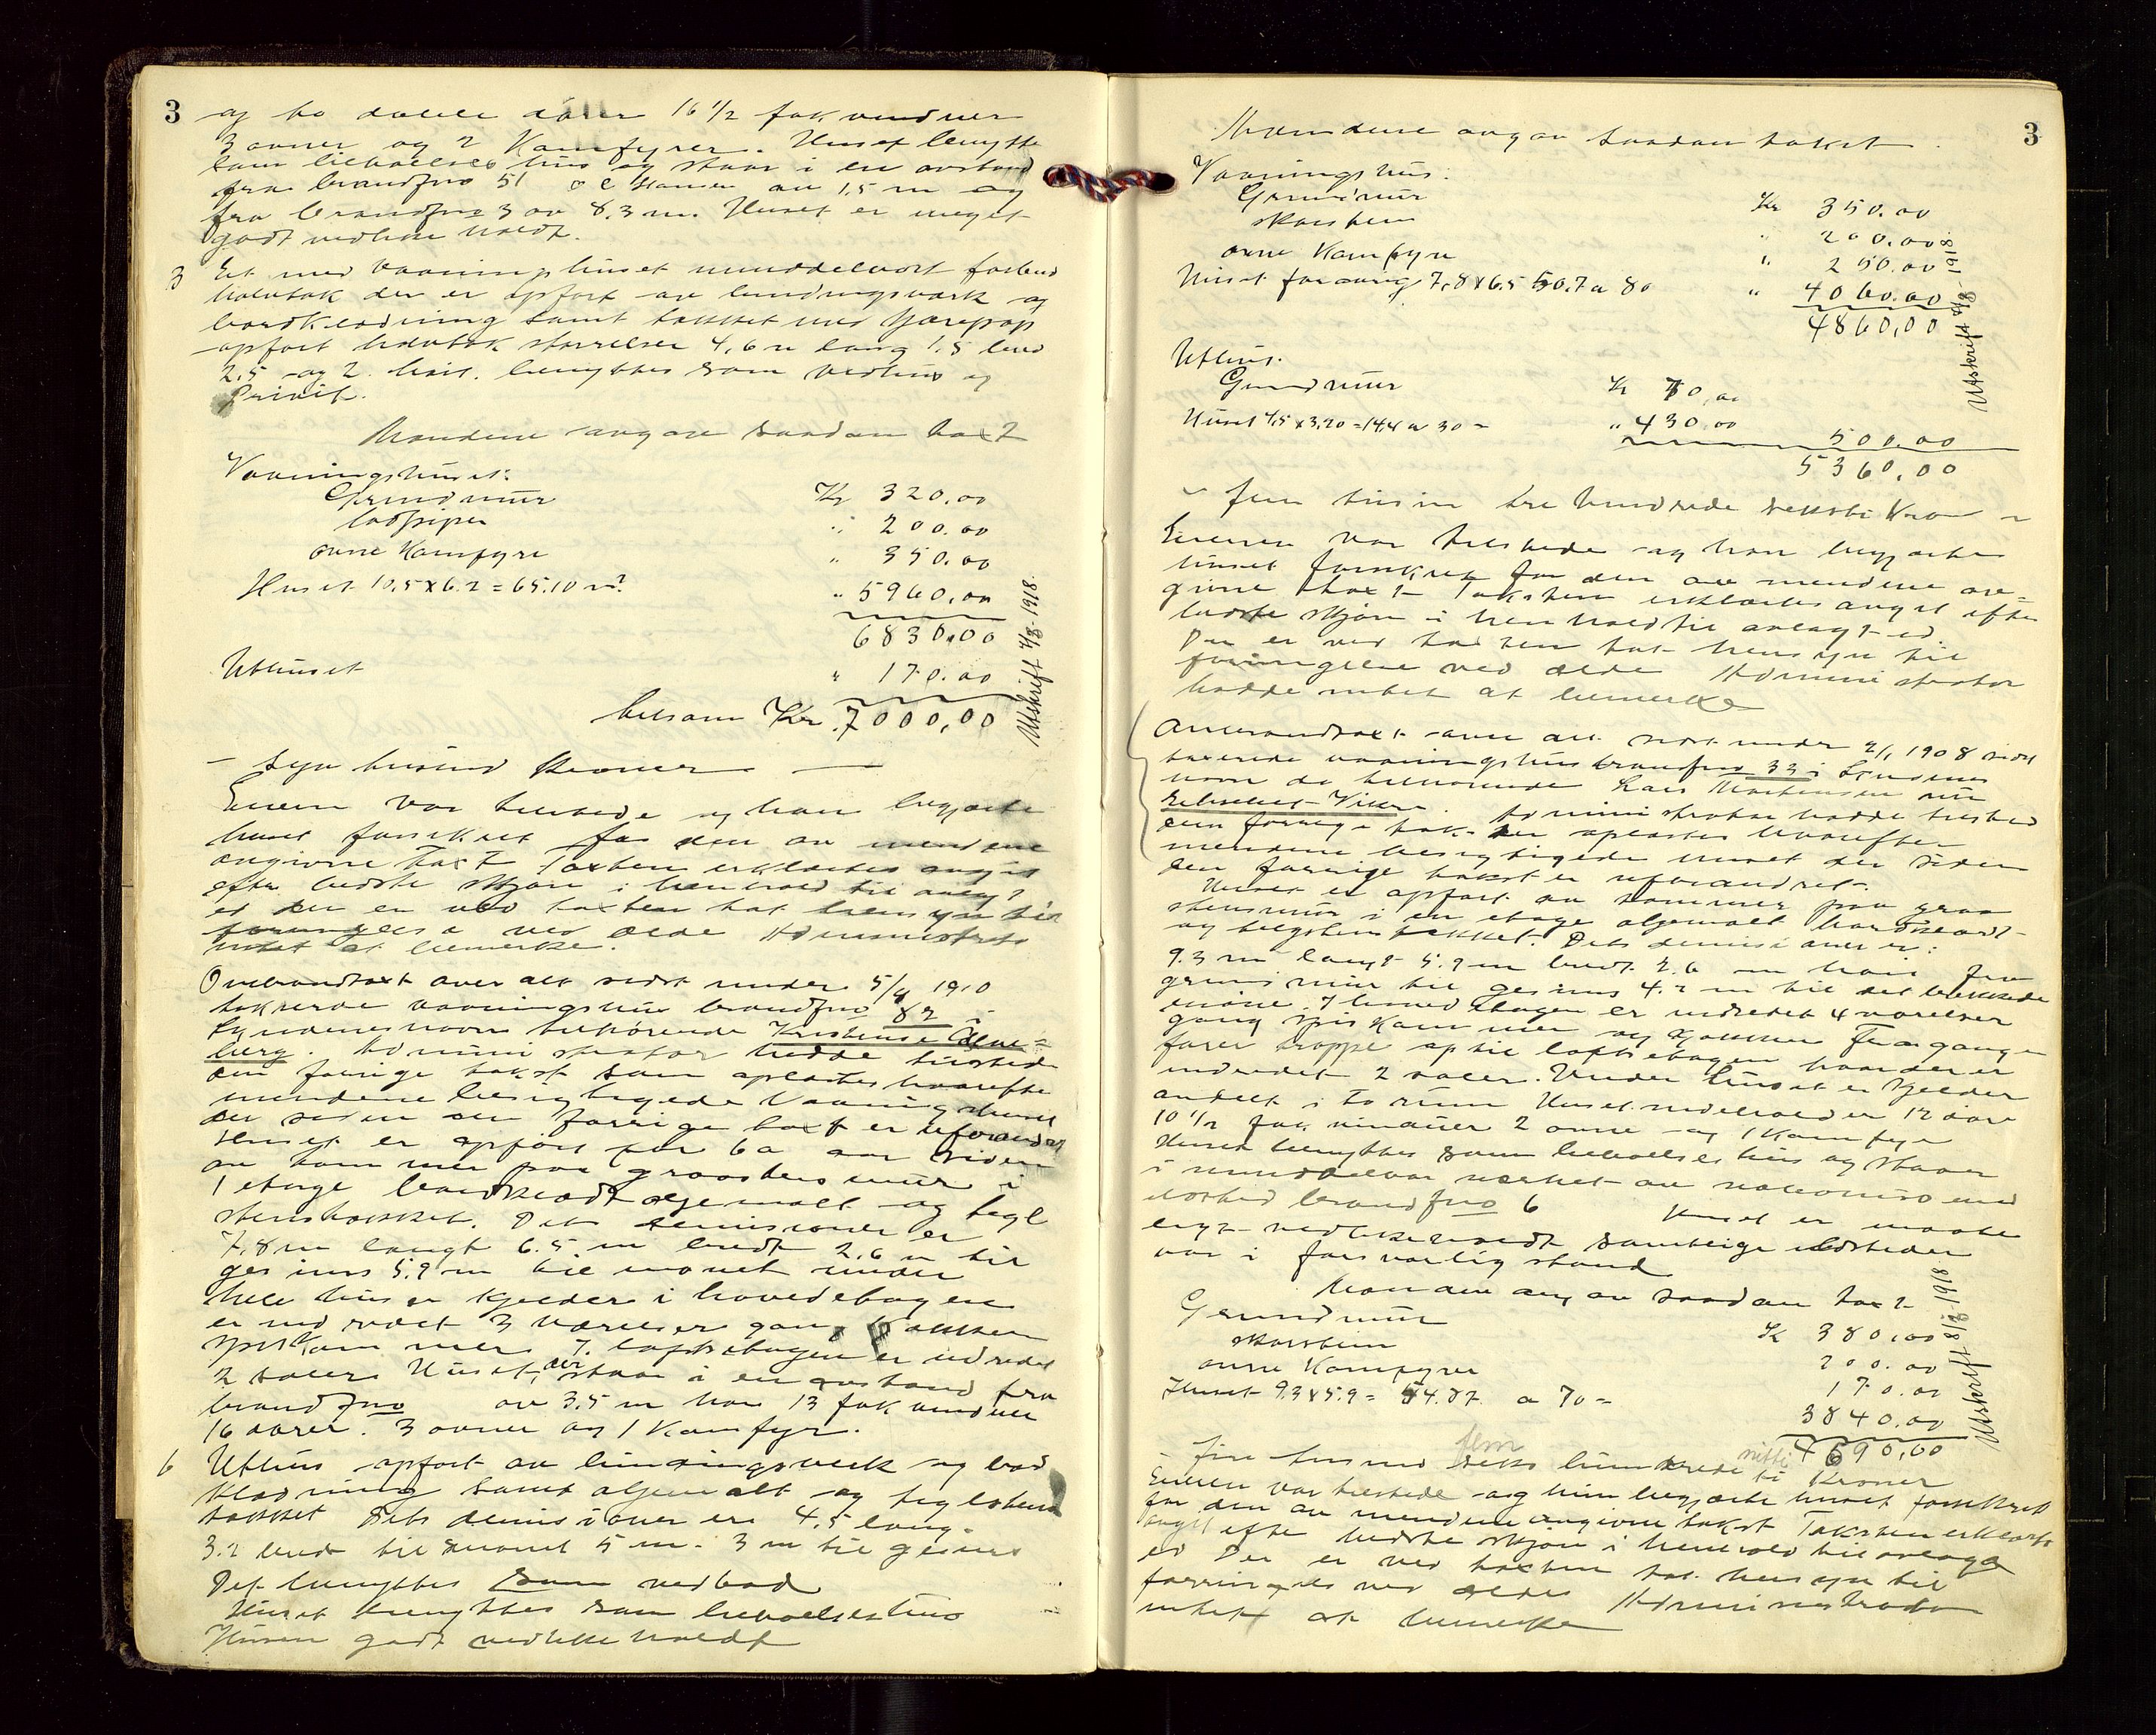 3
og to doble dører 16 1/2 fak vinduer
3 ovner og 2 Kamfyrer. Huset benyttes
som beboelses hus og staar i en avstand
fra brandfno 51 O C Hansen av 1,5 m og
fra brandfno 3 av 8,3 m. Huset er meget
godt vedlike holdt.
3 Et med vaaningshuset umiddelbart forbund
halvtak der er opført av bindingsværk og
bordklædning samt tækket med tjærepap
opført halvtak størrelser 4,6 m lang 1,5 bred
2,5 og 2 høit. benyttes som vedhus og
Privit.
Mændene angav saadan taxt
Vaaningshuset:
Grundmur Kr 320.00
 200.00
ovne Kamfyre " 350.00
Huset 10,5 x 6.2 = 65.10 m² " 5960,00
6830,00
Uthuset " 170.00
tilsam Kr. 7000,00
Utskrift 4/8-1918
- syv tusind Kroner -
Eieren var tilstede og han begjærte
huset forsikret for den av mændene
angivne taxt Taxten erklærtes angit
efter bedste skjøn i henhold til avlagt
ed der er ved taxten tat hensyn til
forringelse ved ælde Administrator
intet at bemerke.
Ombrandtaxt over alt sidst under 5/4 1910
takserte vaaningshus brandfno 82 i
Lyndenes tilhørende Kristense
berg. Administrator hadde tilstede
den forrige takst som oplæstes hvorefter
mændene besigtigede Vaaningshuset
der siden den forrige taxt er uforandret
Huset er opført for 60 aar siden
av tømmer paa graastens mur i
1 etage bordklædt oljemalt og tegl
stenstækket. Dets demisioner er
7,8 m langt 6.5 m bredt 2,6 m til
gesims 5.9 m til mønet under
hele hus er kjelder i hovedetagen
er indrædet 3 værelser gang kjøkken
spiskammer I loftsetagen er indredet
2 saler. Huset, der staar i en avstand fra
brandfno av 3.5 m har 13 fak vinduer
16 dører. 3 ovner og 1 Kamfyr.
6 Uthus opført av bindingsverk og bord
klædning samt oljemalt og teglstens
tækket Dets demisioner er 4,5 lang.
3.2 bred til mønet 5 m. 3 m til gesims
Det benyttes som vedbod
Huset benyttes som beboelseshus
Husene godt vedlikeholdt
3
Mændene angav saadan takst
Vaaningshus:
Grundmur Kr 350.00
skorsten " 200.00
ovne Kamfyr " 250.00
Huset forøvrig 7,8 x 6.5 50,7 a 80 " 4060.00
4860,00
Utskrift 4/8-1918
Uthus:
Grundmur Kr 70,00
Huset 4,5 x 3,20 = 14,4 a 30 = " 430,00 500.00
5360,00
- fem tusin tre hundrede seksti Kro -
Eieren var tilstede og han begjærte
huset forsikret for den av mendene an-
givne taxt Taksten erklærtes angit efter
bedste skjøn i henhold til avlagt ed.
Der er ved taxten tat hensyn til
forringelse ved ælde Administrator
hadde intet at bemerke
Ombrandtaxt over alt sidst under 2/1 1908 sidst
takserede vaaningshus brandfno 33 i Lyndenes
 tilhørende Lars Mortensen nu
 Administrator hadde tilstede
den forrige takst der oplæstes hvorefter
mendene besigtigede huset der siden
den forrige takst er uforandret.
Huset er opført av tømmer paa graa
stensmur i en etage oljemalt bordklædt
og teglstentækket. Dets demisioner er:
9.3 m langt 5.9 m bredt 2.6 m høi fra
grundmur til gesims 4.2 m til det tækkede
møne. I hovedetagen er indredet 4 værelser
gang spiskammer og kjøkken Fra gangen
fører trappe op til loftsetagen hvor der er
indredet 2 saler. Under huset er kjelder
andelt i to rum Huset indeholder 12 døre
10 1/2 fak vinduer 2 ovne og 1 Kamfyr
Huset benyttes som beboelseshus og staar
i umiddelbar nærhet av 
 brandfno 6 Huset er maate
ligt vedlikeholdt samtlige ildsteder
var i forsvarlig stand
Mændene angav saadan taxt
Grundmur Kr 380,00
skorstein 200.00
ovne Kamfyrer 170.00
Huset 9.3 x 5.9 = 54.87 a 70 = 3840.00
4690,00
Utskrift 8/8-1918
fem nitti
- fire tusind seks hundrede ti Kroner
Eieren var tilstede og hun begjærte huset forsikret
for den av mendene angivne takst Taksten erklærtes
angit efter bedste skjøn i henhold til avlagt
ed Der er ved taxten tat hensyn til
forringelse ved ældes Administrator
intet at bemerke